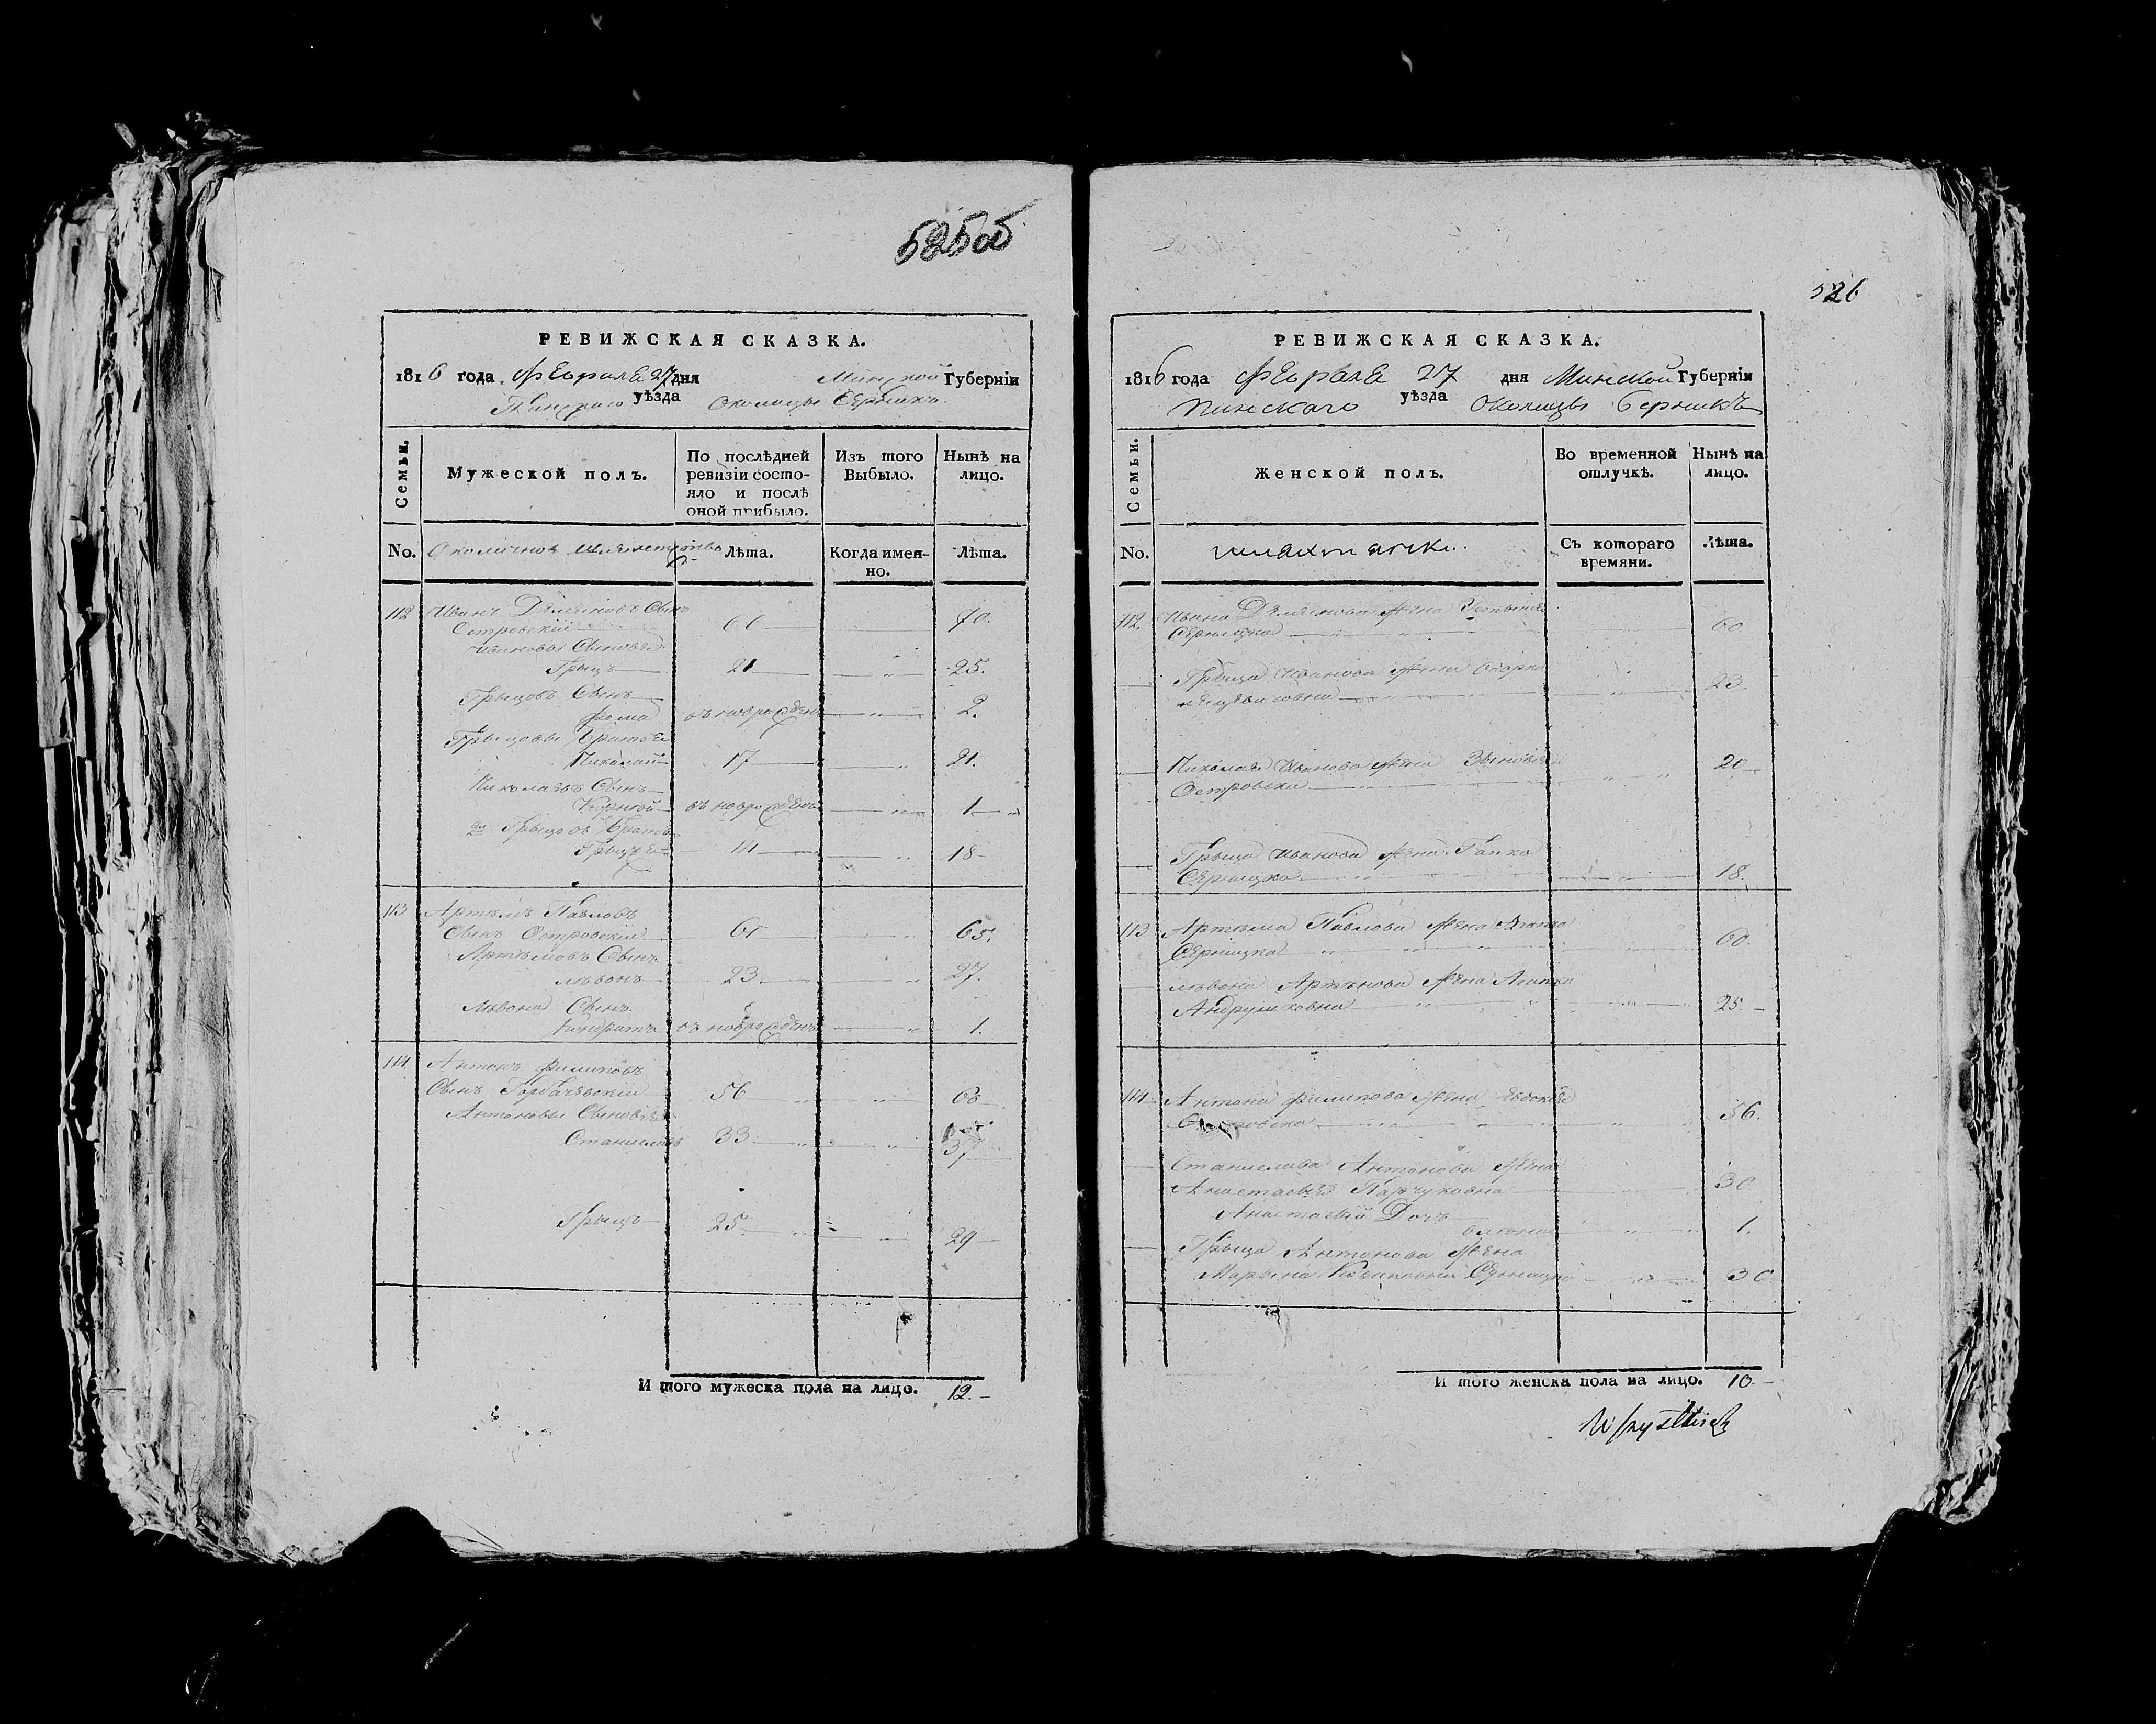 525об
РЕВИЖСКАЯ СКАЗКА.
1816 года Февраля 27 дня Минской Губерніи
Пинскаго уѣзда Околицы Серникъ
Семьи.
Мужеской полъ.
По послѣдней ревизіи состо-
яло и послѣ
оной прибыло.
Изъ того
Выбыло.
Нынѣ на
лицо.
No.
Околичное Шляхетство
Лѣта.
Когда имен-
но.
Лѣта.
112 Иванъ Демьяновъ Сынъ
Островскій 66 70.
Ивановы Сыновья
Грыцъ 21 25.
Грыцовъ Сынъ
Фома въ новорожденъ 2.
Грыцовы Братья
Николай 17 21.
Николаевъ Сынъ
въ новорожденъ 1
Грыцовъ Братъ
14 18
113 Артемъ Павловъ
Сынъ Островскій 61 65.
Артемовъ Сынъ
Лѣвонъ 23 27.
Лѣвона Сынъ
Кондратъ въ новорожденъ 1.
114 Антонъ Филиповъ
Сынъ Горбачевскій 56 60
Антоновы Сыновья
Станиславъ 33 37
Грыцъ 25 29
И того мужеска пола на лицо. 12.
526
РЕВИЖСКАЯ СКАЗКА.
1816 года Февраля 27 дня Минской Губерніи
Пинскаго уѣзда Околицы Серникъ
Семьи.
Женской полъ.
Во временной
отлучкѣ.
Нынѣ на
лицо.
No.
шляхтянки
Съ котораго
времяни.
Лѣта.
112. Ивана Демьянова жена Устынія
Серницка 60
Грыца Иванова жена
23.
Николая Иванова жена Зѣновія
Островска 20
Грыца Иванова жена Гапка
Серницка 18.
113 Артема Павлова жена Агапа
Серницка 60.
Лѣвона Артемова жена Агапка
Андрушковна 25.
114 Антона Филипова жена Явдокія
56.
Станислава Антонова жена
Анастасія Парчуковна 30
Анастасіи Дочь
1.
Грыца Антонова жена
Марьяна Серницка 30
И того женска пола на лицо. 10